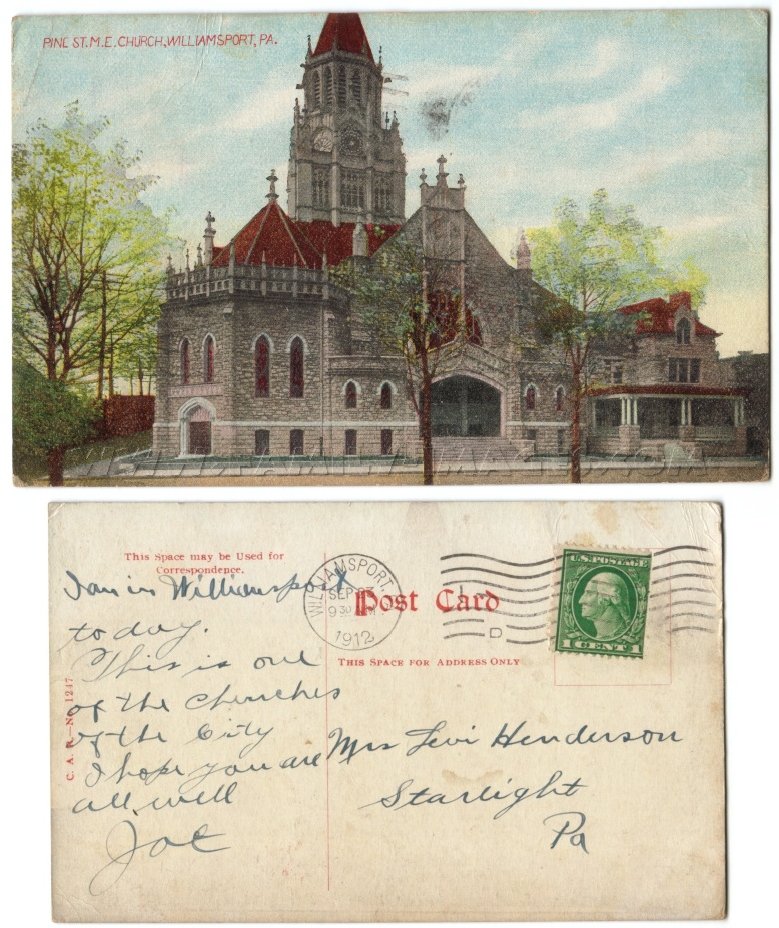 PINE ST. M.E. CHURCH, WILLIAMSPORT, PA.
This Space may be Used for
Correspondence.
I am in Williamsport
today.
This is one
of the churches
of the City
I hope you are
all well
Joe
C. A. R.—No. 1247
WILLIAMSPORT,
SEP
9 30 AM
1912
Post Card
D
U.S. POSTAGE
1 CENT 1
THIS SPACE FOR ADDRESS ONLY
Mrs Levi Henderson
Starlight
Pa